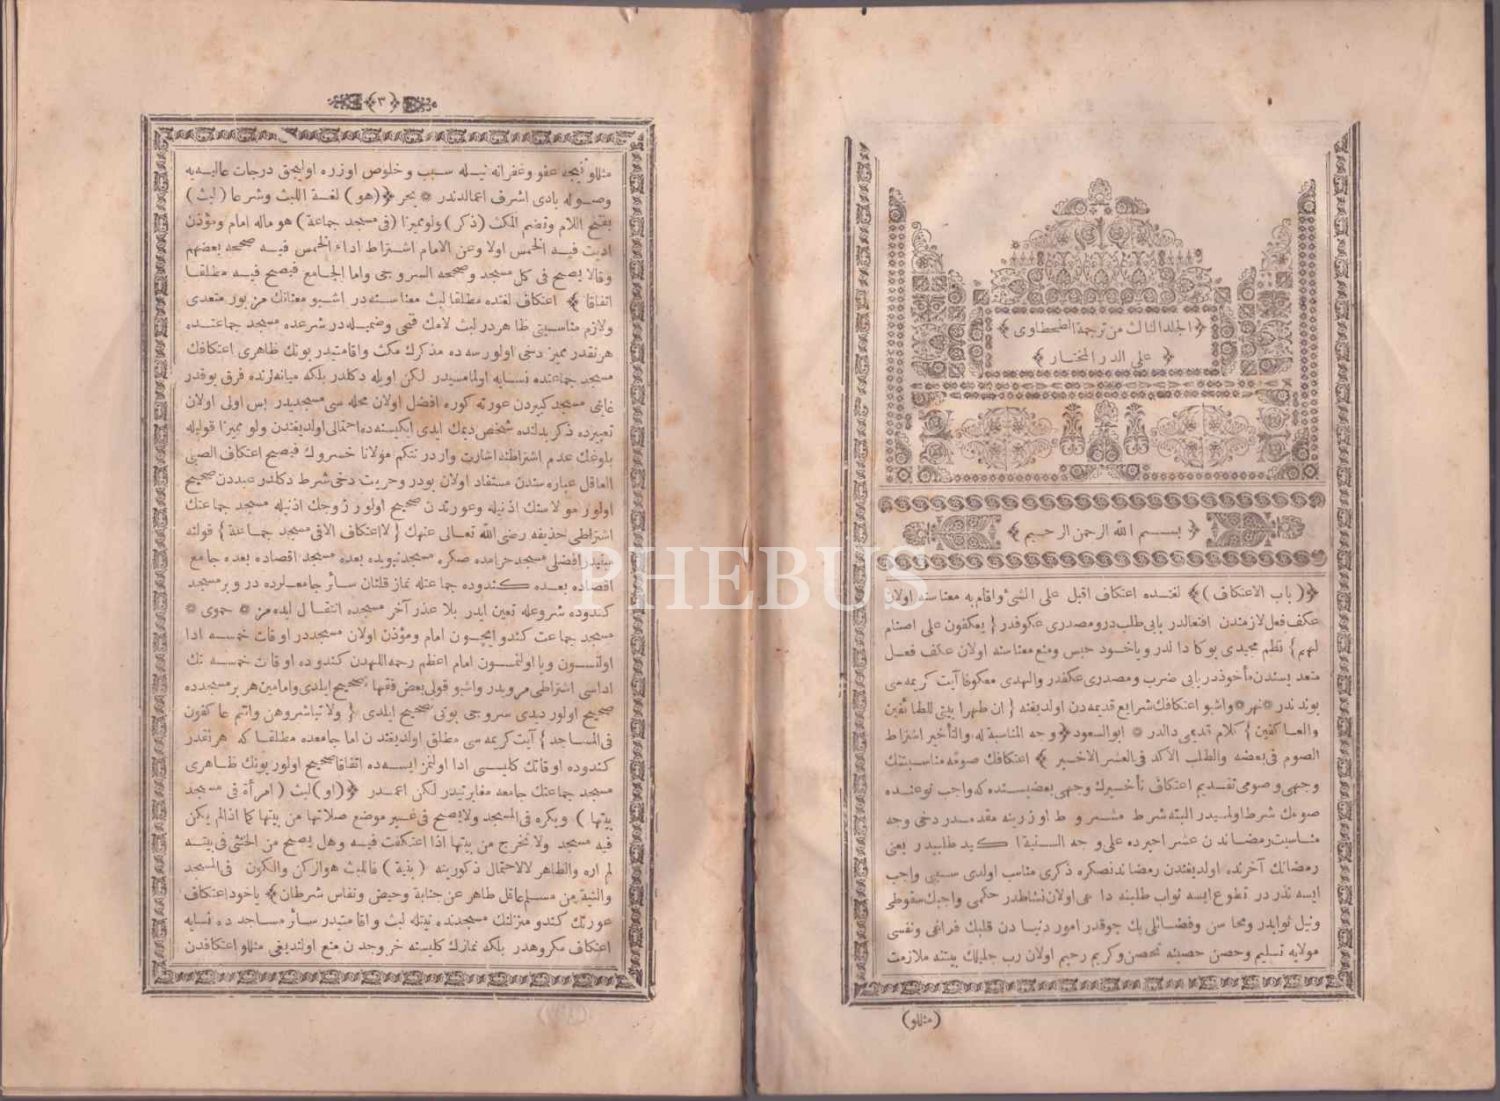 ﴿الجلد الثالث من ترجمة الطحطاوى﴾
﴿على الدر المختار﴾
﴿بسم الله الرحمن الرحيم﴾
﴿(باب الاعتكاف)﴾ لغتده اعتكاف اقبل على الشئ واقام به معناسنه اولان
عكف فعل لازمندن افتعالدر بابى طلب در ومصدرى عكوفدر {يعكفون على اصنام
لهم} نظم مجيدى بوكا دالدر وياخود حبس ومنع معناسنه اولان عكف فعل
متعد بسندن مأخوذدر بابى ضرب ومصدرى عكفدر والهدى معكوفا آيت كريمه سى
بوندندر * نهر * واشبو اعتكافك شرايع قديمه دن اولديغنه {ان طهرا بيتى للطائفين
والعاكفين} كلام قديمى دالدر * ابو السعود ﴿وجه المناسبة له والتأخير اشتراط
الصوم فى بعضه والطلب الآكد فى العشر الاخير﴾ اعتكافك صومه مناسبتنك
وجهى وصومى تقديم اعتكاف تأخيرك وجهى بعضيسنده كه واجب نوعنده
صومك شرط اولمسيدر البته شرط مشروط اوزرينه مقدمدر دخى وجه
مناسبت رمضاندن عشر اخيرده على وجه السنية اكيد طلبيدر يعنى
رمضانك آخرنده اولديغندن رمضاندنصكره ذكرى مناسب اولدى سببى واجب
ايسه نذر در تطوع ايسه ثواب طلبنه داعى اولان نشاطدر حكمى واجبك سقوطى
ونيل ثوابدر ومحاسن وفضائلى پك چوقدر امور دنيادن قلبك فراغى ونفسى
مولايه تسليم وحصن حصينه تحصن وكريم رحيم اولان رب جليلك بيتنه ملازمت
(مثللو)
﴿٣﴾
مثللو نيجه عفو وغفرانه نيله سبب وخلوص اوزره اوليجق درجات عاليه يه
وصوله بادى اشرف اعمالدندر * بحر ﴿(هو) لغة اللبث وشرعا (لبث)
بفتح اللام وتضم المكث (ذكر) ولو مميزا (فى مسجد جماعة) هو ماله امام ومؤذن
اديت فيه الخمس اولا وعن الامام اشتراط اداء الخمس فيه صححه بعضهم
وقالا يصح فى كل مسجد وصححه السروجى واما الجامع فيصح فيه مطلقا
اتفاقا﴾ اعتكاف لغتده مطلقا لبث معناسنه در اشبو معنانك مزبور متعدى
ولازم مناسبتى ظاهردر لبث لامك فتحى وضميله در شرعده مسجد جماعتده
هر نقدر مميز دخى اولور سه ده مذكرك مكث واقامتيدر بونك ظاهرى اعتكافك
مسجد جماعتده نسايه اولمامسيدر لكن اويله دكلدر بلكه ميانه لرنده فرق يوقدر
غايتى مسجد كبيردن عورته كوره افضل اولان محله سى مسجديدر پس اولى اولان
تعبيرده ذكر بدلنده شخص ديمك ايدى ايكيسنه ده احتمالى اولديغندن ولو مميزا قوليله
بلوغك عدم اشتراطنه اشارت واردر نتكيم مولانا خسروك فيصح اعتكاف الصبى
العاقل عباره سندن مستفاد اولان بودر وحريت دخى شرط دكلدر عبددن صحيح
اولور مولاسنك اذنيله وعورتدن صحيح اولور زوجك اذنيله مسجد جماعتك
اشتراطى حذيفه رضى الله تعالى عنهك {لا اعتكاف الا فى مسجد جماعة} قولنه
مبنيدر افضلى مسجد حرامده صكره مسجد نبويده بعده مسجد اقصاده بعده جامع
اقصاده بعده كندوده جماعتله نماز قلنان سائر جامعلرده در وبر مسجد
كندوده شروعله تعين ايدر بلا عذر آخر مسجده انتقال ايده مز * حموى *
مسجد جماعت كندو ايچون امام ومؤذن اولان مسجددر اوقات خمسه ادا
اولنسون ويا اولنمسون امام اعظم رحمه اللهدن كندوده اوقات خمسه نك
اداسى اشتراطى مرويدر واشبو قولى بعض فقها تصحيح ايلدى وامامين هر مسجدده
صحيح اولور ديدى سروجى بونى تصحيح ايلدى {ولا تباشروهن وانتم عاكفون
فى المساجد} آيت كريمه سى مطلق اولديغندن اما جامعده مطلقا كه هر نقدر
كندوده اوقاتك كليسى ادا اولنمز ايسه ده اتفاقا صحيح اولور بونك ظاهرى
مسجد جماعتك جامعه مغايرتيدر لكن اعمدر ﴿(او) لبث (امرأة فى مسجد
بيتها) ويكره فى المسجد ولا يصح فى غير موضع صلاتها من بيتها كما اذا لم يكن
فيه مسجد ولا تخرج من بيتها اذا اعتكفت فيه وهل يصح من الخنثى فى بيته
لم اره والظاهر لا لاحتمال ذكوريته (بنية) فاللبث هو الركن والكون فى المسجد
والنية من مسلم عاقل طاهر عن جنابة وحيض ونفاس شرطان﴾ ياخود اعتكاف
عورتك كندو منزلنك مسجدنده نيتله لبث واقامتيدر سائر مساجدده نسايه
اعتكاف مكروهدر بلكه نمازك كليسنه خروجدن منع اولنديغى مثللو اعتكافدن
PHEBUS